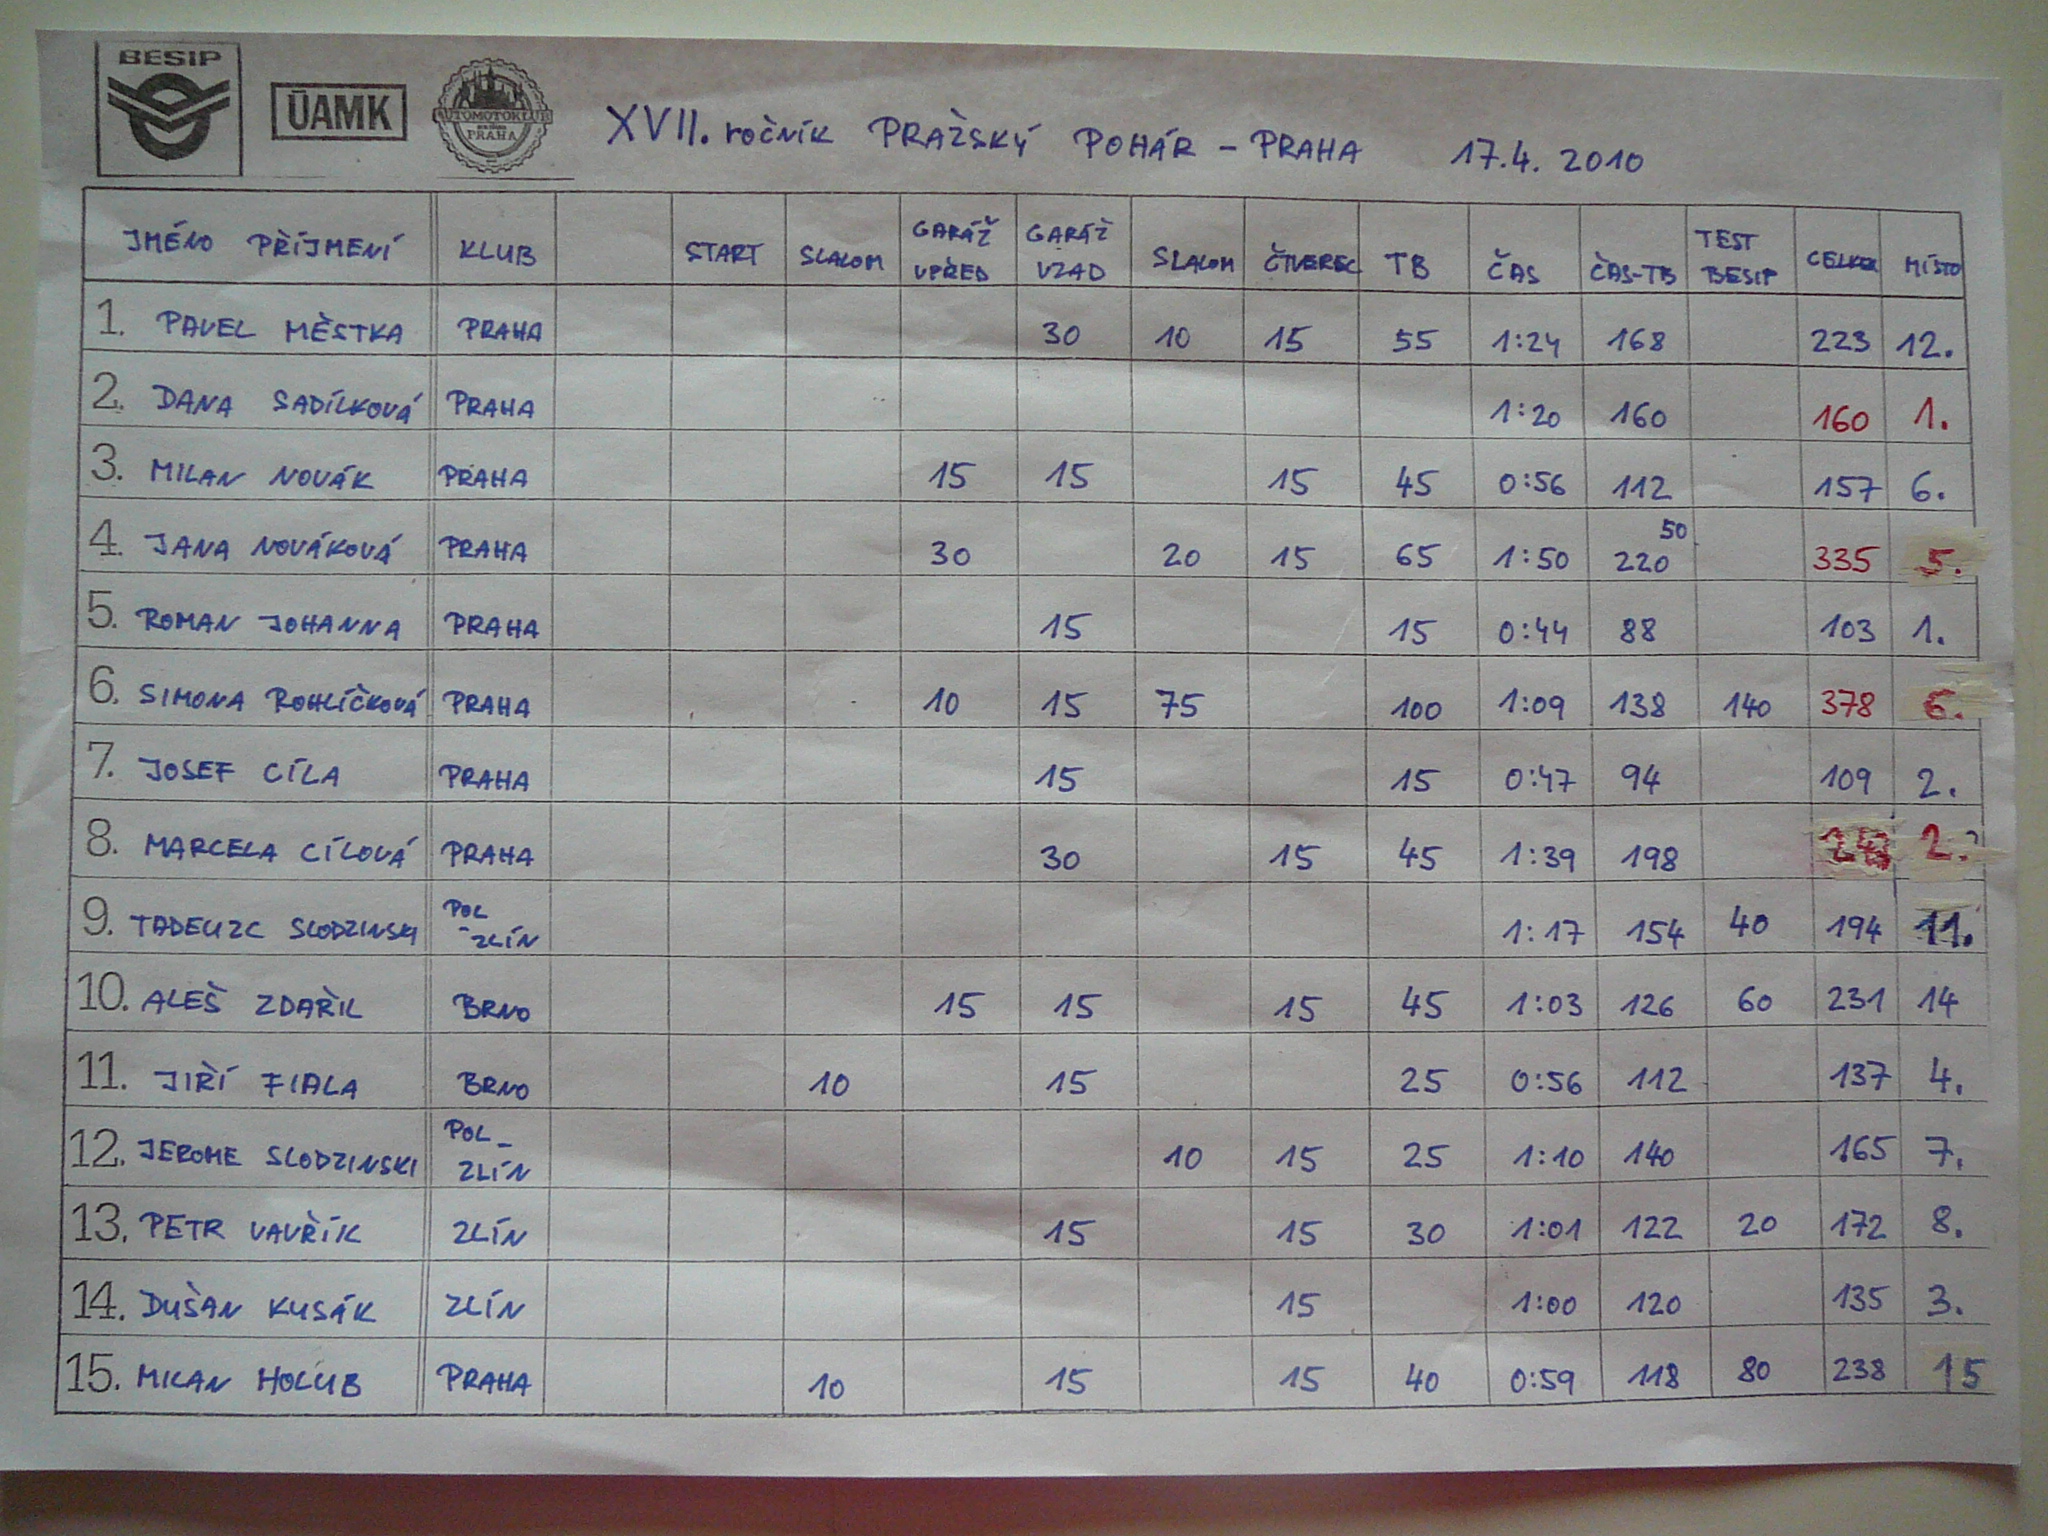 BESIP
ÚAMK
AUTOMOTOKLUB
PRAHA
XVII. ročník PRAŽSKÝ POHÁR - PRAHA 17.4. 2010
JMÉNO PŘÍJMENÍ KLUB START SLALOM GARÁŽ VPŘED GARÁŽ VZAD SLALOM ČTVEREC TB ČAS ČAS-TB TEST BESIP CELKEM MÍSTO
1. PAVEL MĚSTKA PRAHA 30 10 15 55 1:24 168 223 12.
2. DANA SADÍLKOVÁ PRAHA 1:20 160 160 1.
3. MILAN NOVÁK PRAHA 15 15 15 45 0:56 112 157 6.
4. JANA NOVÁKOVÁ PRAHA 30 20 15 65 1:50 50 220 335 5.
5. ROMAN JOHANNA PRAHA 15 15 0:44 88 103 1.
6. SIMONA ROHLÍČKOVÁ PRAHA 10 15 75 100 1:09 138 140 378 6.
7. JOSEF CÍLA PRAHA 15 15 0:47 94 109 2.
8. MARCELA CÍLOVÁ PRAHA 30 15 45 1:39 198 243 2.
9. TADEUZC SLODZINSKI POL - ZLÍN 1:17 154 40 194 11.
10. ALEŠ ZDAŘIL BRNO 15 15 15 45 1:03 126 60 231 14
11. JIŘÍ FIALA BRNO 10 15 25 0:56 112 137 4.
12. JEROME SLODZINSKI POL - ZLÍN 10 15 25 1:10 140 165 7.
13. PETR VAVŘÍK ZLÍN 15 15 30 1:01 122 20 172 8.
14. DUŠAN KUSÁK ZLÍN 15 1:00 120 135 3.
15. MILAN HOLUB PRAHA 10 15 15 40 0:59 118 80 238 15